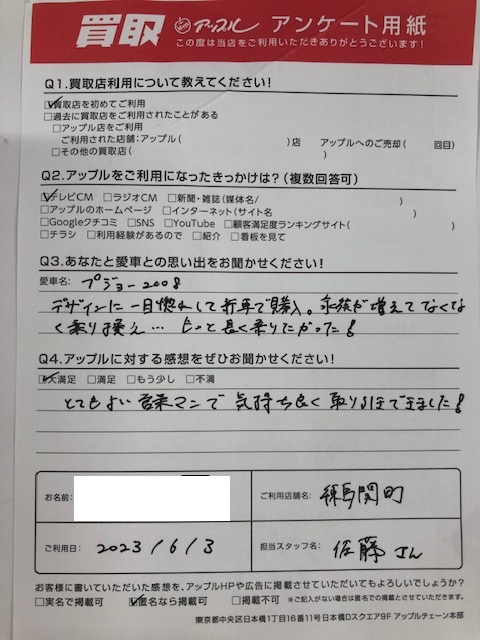 買取 アップル アンケート用紙
この度は当店をご利用いただきありがとうございます!
Q1.買取店利用について教えてください!
☑買取店を初めてご利用
□過去に買取店をご利用されたことがある
□アップル店をご利用
ご利用された店舗:アップル( )店 アップルへのご売却( 回目)
□その他の買取店( )
Q2.アップルをご利用になったきっかけは?(複数回答可)
☑テレビCM □ラジオCM □新聞・雑誌(媒体名/ )
□アップルのホームページ □インターネット(サイト名 )
□Googleクチコミ □SNS □YouTube □顧客満足度ランキングサイト( )
□チラシ □利用経験があるので □紹介 □看板を見て
Q3.あなたと愛車との思い出をお聞かせください!
愛車名: プジョー2008
デザインに一目惚れして新車で購入。家族が増えてなくな
く乗り換え… もっと長く乗りたかった!
Q4.アップルに対する感想をぜひお聞かせください!
☑大満足 □満足 □もう少し □不満
とてもよい営業マンで気持ち良く取り引きできました!
お名前:
ご利用店舗名: 練馬関町
ご利用日: 2023/6/3
担当スタッフ名: 佐藤さん
お客様に書いていただいた感想を、アップルHPや広告に掲載させていただいてもよろしいでしょうか?
□実名で掲載可 ☑匿名なら掲載可 □掲載不可 ※ご記入がない場合は匿名での掲載とさせていただきます。
東京都中央区日本橋1丁目16番11号日本橋Dスクエア9F アップルチェーン本部